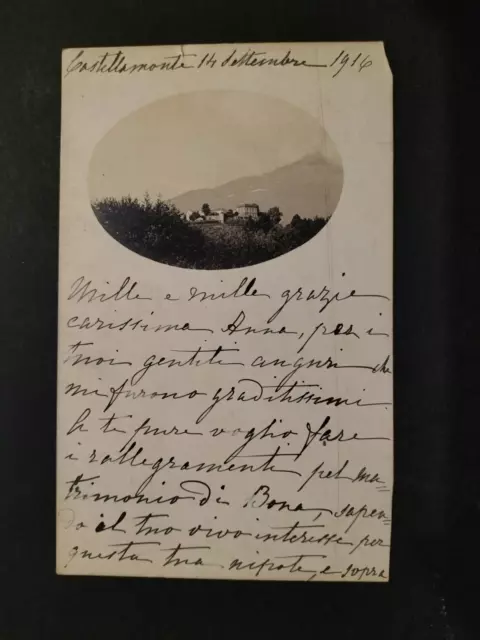 Castellamonte 14 settembre 1916
Mille e mille grazie
carissima Anna, per i
tuoi gentili auguri che
mi furono graditissimi.
A te pure voglio fare
i rallegramenti pel ma=
trimonio di Bona, sapen=
do il tuo vivo interesse per
questa tua nipote, e sopra